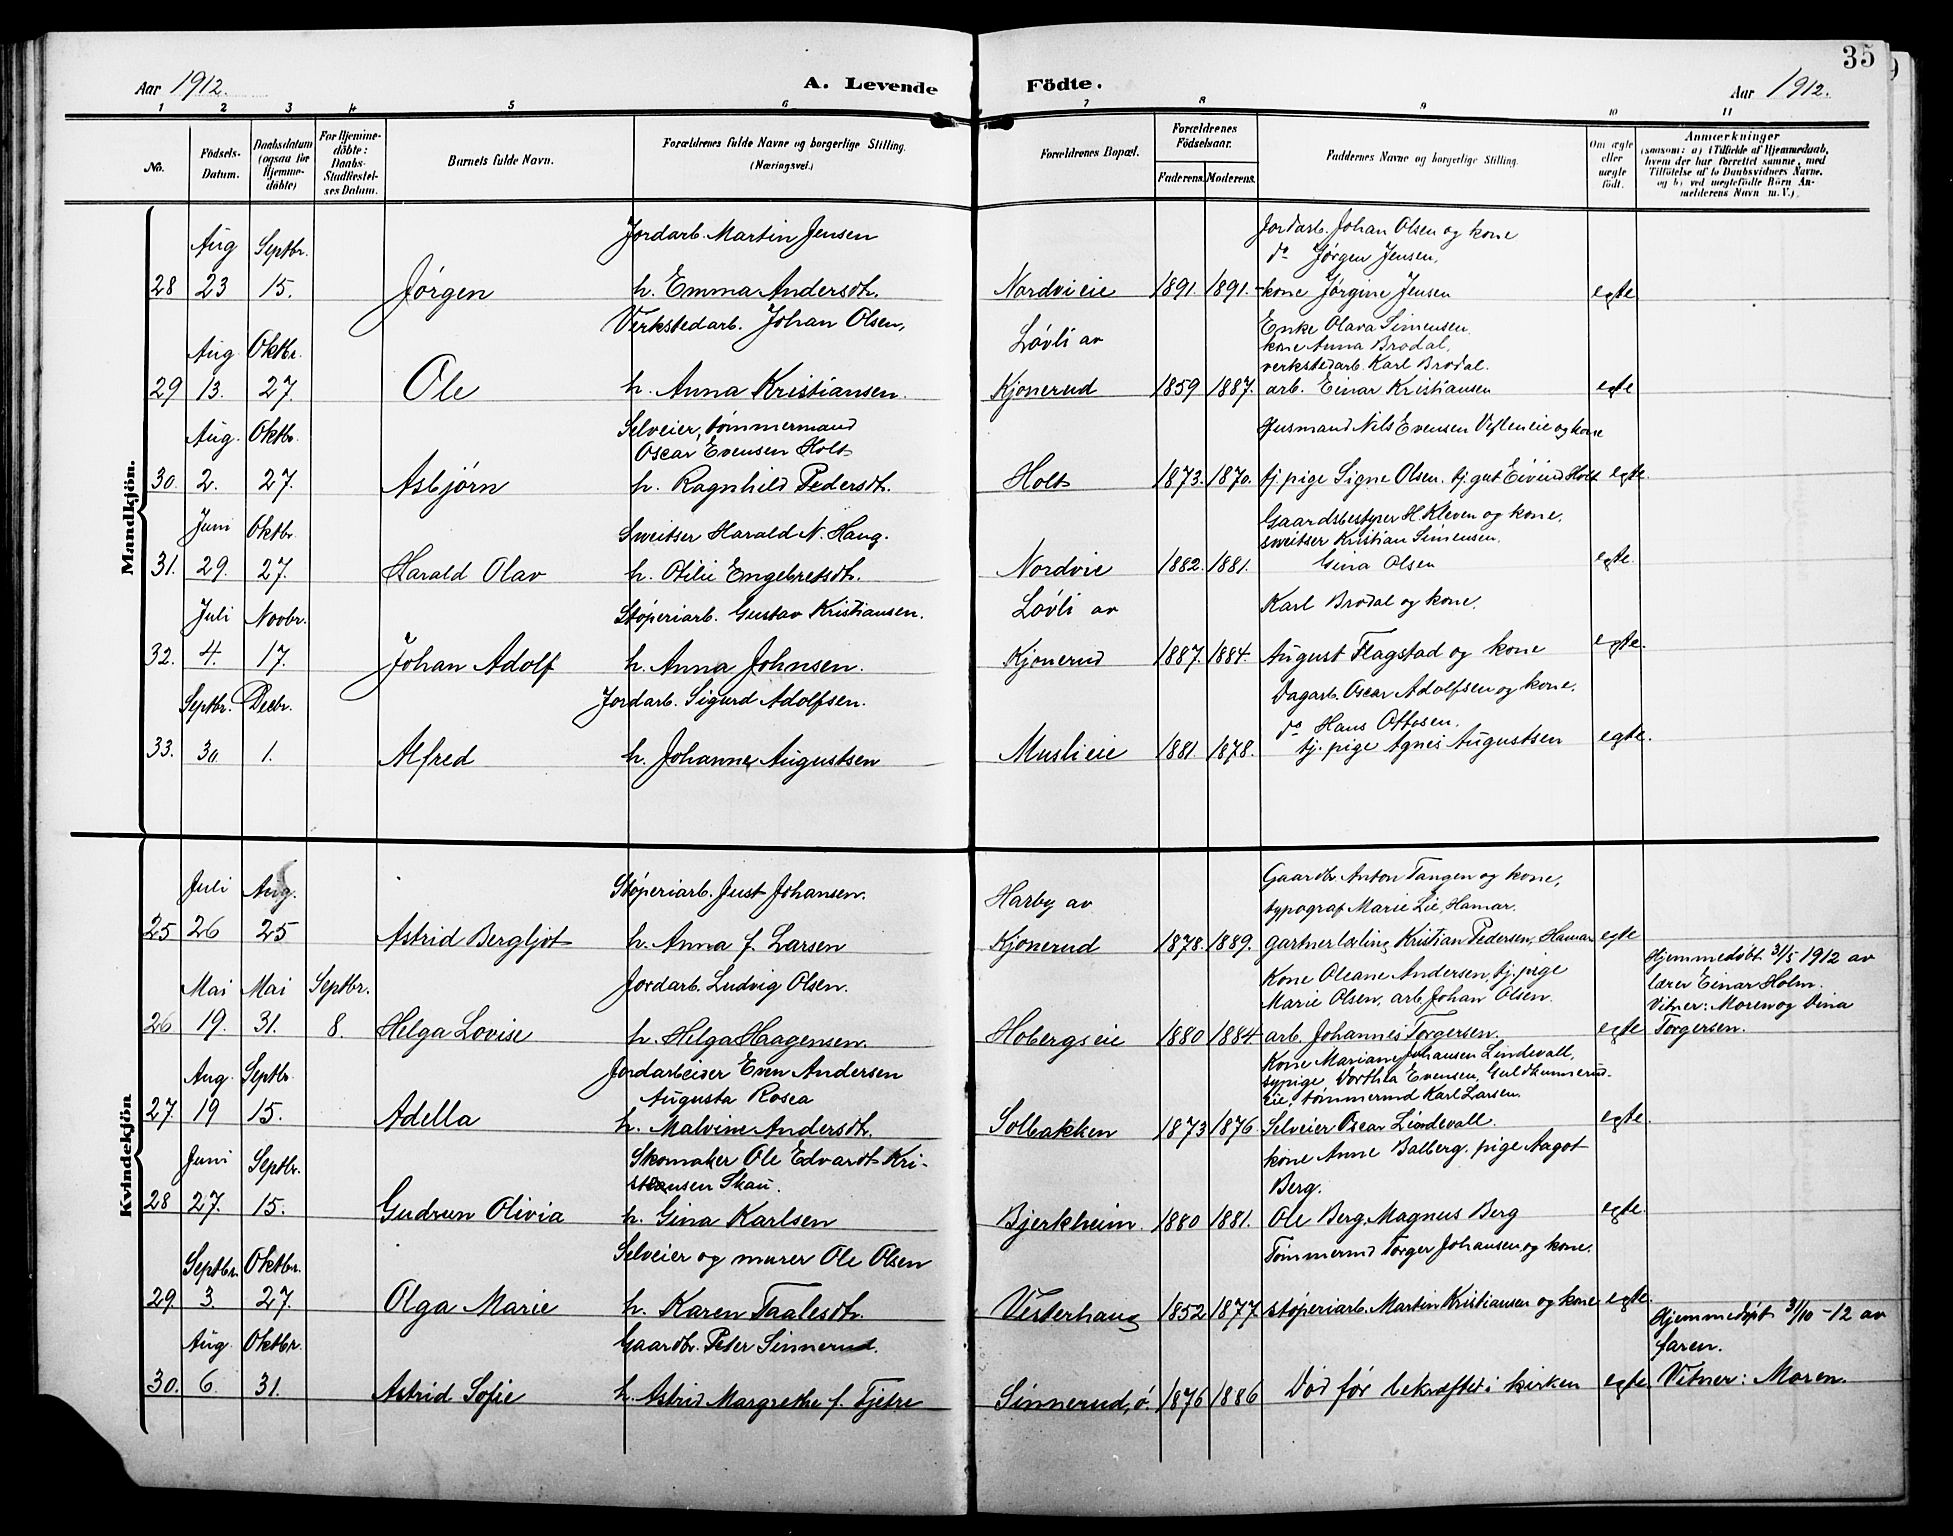 35
Aar 1912.
A. Levende Födte.
Aar 1912.
1 2 3 4 5 6 7 8 9 10 11
No.
Födsels-
Datum.
Daabsdatum
(ogsaa for
Hjemme-
döbte)
For Hjemme-
döbte:
Daabs-
Stadfæstel-
ses Datum.
Barnets fulde Navn.
Forældrenes fulde Navne og borgerlige Stilling.
(Næringsvei.)
Forældrenes Bopæl.
Forældrenes
Födselsaar.
Faderens. Moderens.
Faddernes Navne og borgerlige Stilling.
Om ægte
eller
uægte
født.
Anmærkninger
(saasom: a) i Tilfælde af Hjemmedaab,
hvem der har forrettet samme, med
Tilföielse af to Daabsvidners Navne,
og b) ved uægtefödte Börn An-
melderens Navn m. V.).
Mandkjön.
Jordarb. Martin Jensen
Jordarb. Johan Olsen og kone
Aug Septbr.
do Jørgen Jensen,
28 23 15. Jørgen h. Emma Andersdtr. Nordvieie 1891. 1891. kone Jørgine Jensen egte
Verkstedarb. Johan Olsen,
Løvli av
Enke Olava Simensen
kone Anna Brodal,
Aug. Oktbr.
verkstedarb. Karl Brodal.
29 13. 27. Ole h. Anna Kristiansen. Kjonerud 1859 1887. arb. Einar Kristiansen egte
Aug. Oktbr.
Selveier, tømmermand
Oscar Evensen Holt
Husmand Nils Evensen Veflen eie og kone
30. 2. 27. Asbjørn h. Ragnhild Pedersdtr. Holt 1873. 1870. tj.pige Signe Olsen. tj.gut Eivind Holt egte.
Juni Oktbr.
Sveitser Harald N. Haug.
Gaardsbestyrer H. Kleven og kone,
sveitser Kristian Simensen.
31. 29. 27. Harald Olav h. Otilie Engebretsdtr. Nordvie 1882. 1881. Gina Olsen egte.
Juli Novbr.
Støperiarb. Gustav Kristiansen.
Løvli av
Karl Brodal og kone,
32. 4. 17. Johan Adolf h. Anna Johnsen. Kjonerud 1887. 1884. August Flagstad og kone egte.
Septbr. Decbr.
Jordarb. Sigurd Adolfsen.
Dagarb. Oscar Adolfsen og kone,
do Hans Ottosen.
33. 30. 1. Alfred h. Johanne Augustsen Muslieie 1881. 1878. tj.pige Agnes Augustsen egte.
Kvindekjön
Juli Aug.
Støperiarb. Just Johansen.
Harby av
Gaardbr. Anton Tangen og kone,
typograf Marie Lie, Hamar.
25 26 25 Astrid Bergljot h. Anna f. Larsen Kjonerud 1878. 1889. gartnerlærling Kristian Pedersen, Hamar egte
Mai Mai Septbr.
Jordarb. Ludvig Olsen.
Kone Oleane Andersen, tj.pige
Marie Olsen, arb. Johan Olsen.
Hjemmedøbt 31/5 1912 av
lærer Einar Holm.
Vitner: Moren og Dina
26 19. 31. 8. Helga Lovise h. Helga Haagensen. Hobergseie 1880 1884 arb. Johannes Torgersen. egte Torgersen.
Aug. Septbr.
Jordarbeider Even Andersen
Augusta Rosea
Kone Mariane Johansen Lindevall,
sypige Dorthea Evensen, Guldhammerud-
eie, tømmermd Karl Larsen.
27. 19 15. Adella h. Malvine Andersdtr. Solbakken 1873 1876. Selveier Oscar Lindevall. egte.
Juni Septbr.
Skomaker Ole Edvardt Kri-
stensen Skau.
kone Anne Balberg. pige Aagot
Berg.
28 27. 15. Gudrun Olivia h. Gina Karlsen Bjerkheim. 1880 1881. Ole Berg. Magnus Berg egte.
Septbr. Oktbr.
Selveier og murer Ole Olsen
Tømmermd Torger Johansen og kone.
29. 3. 27. Olga Marie h. Karen Taalesdtr. Vesterhaug 1852 1877. støperiarb. Martin Kristiansen og kone egte.
Aug. Oktbr.
Gaardbr. Peter Sinnerud.
Hjemmedøpt 31/10 -12 av
faren.
30. 6. 31. Astrid Sofie h. Astrid Margrethe f. Tjetre Sinnerud, ø. 1876 1886 Død før bekræftet i kirken egte. Vitner: Moren.